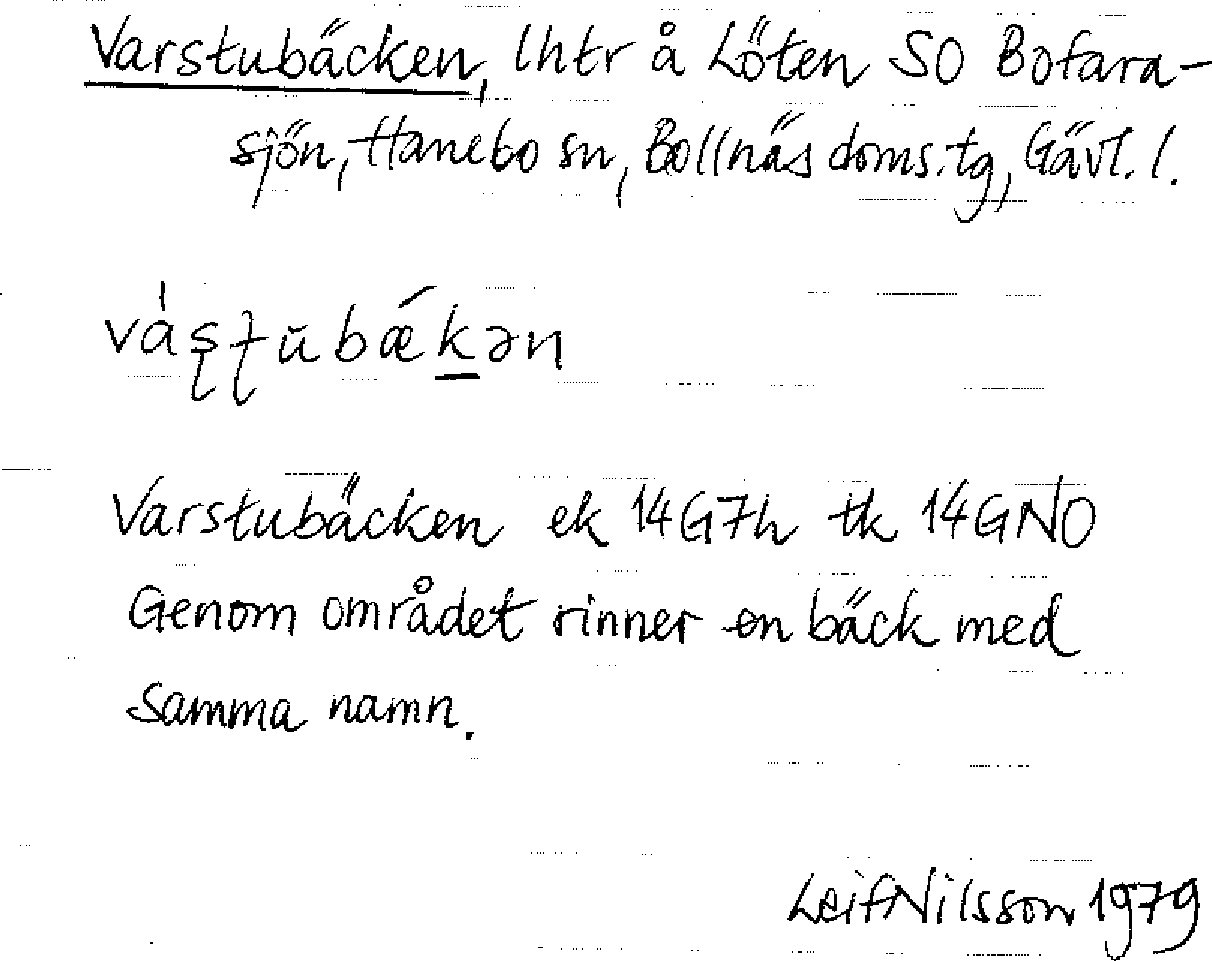 Varstubäcken, lhtr å Löten SO Bofara-
sjön, Hanebo sn, Bollnäs doms.tg, Gävl. l.
vás̨t̨ŭbǽk̲ən
Varstubäcken ek 14G7h tk 14GNO
Genom området rinner en bäck med
samma namn.
Leif Nilsson 1979